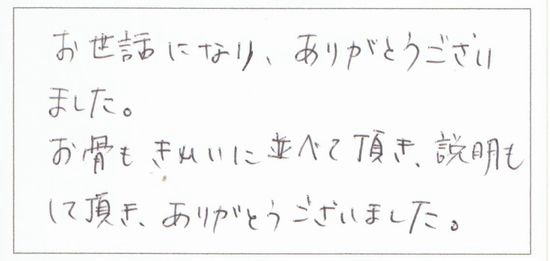 お世話になり、ありがとうござい
ました。
お骨もきれいに並べて頂き、説明も
して頂き、ありがとうございました。